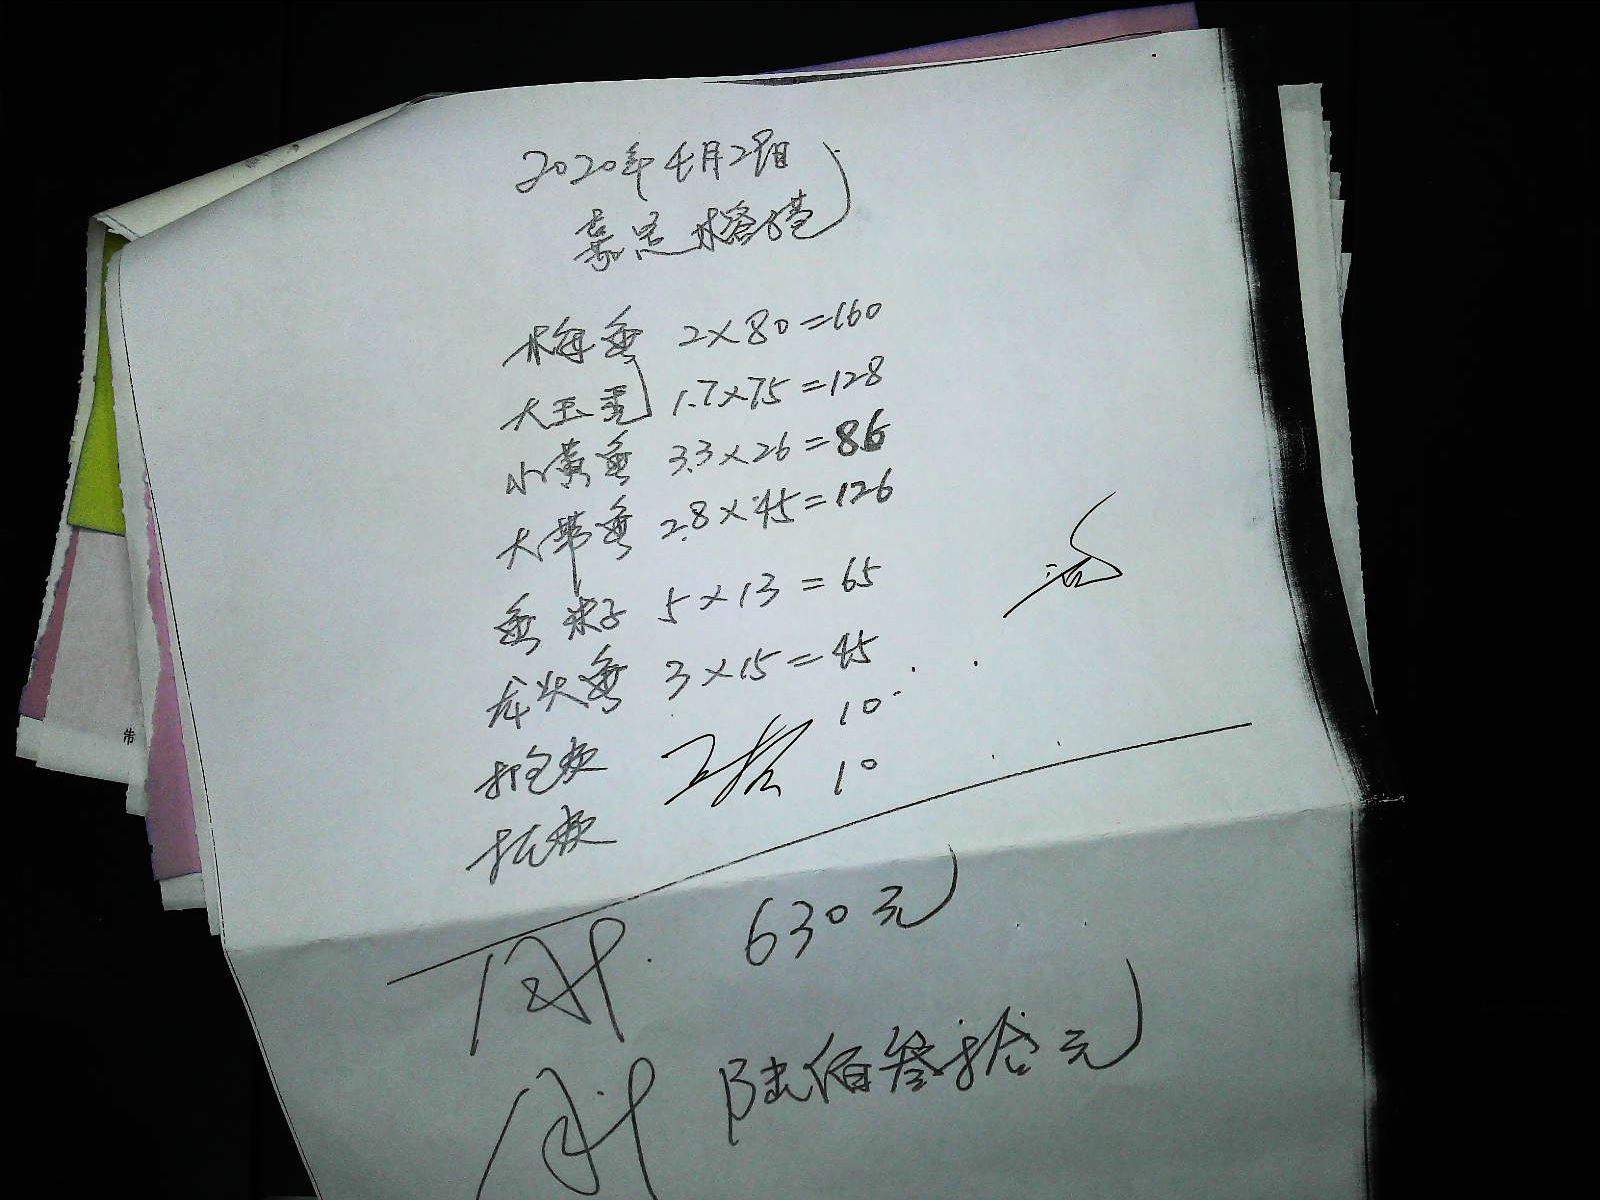 2020年4月2日
嘉思榕港
梅鱼 2×80=160
大玉秃 1.7×75=128
小黄鱼 3.3×26=86
大带鱼 2.8×45=126
鱼米子 5×13=65
龙头鱼 3×15=45
打包费 10
托费 10
合计 630元
合计 陆佰叁拾元
帯